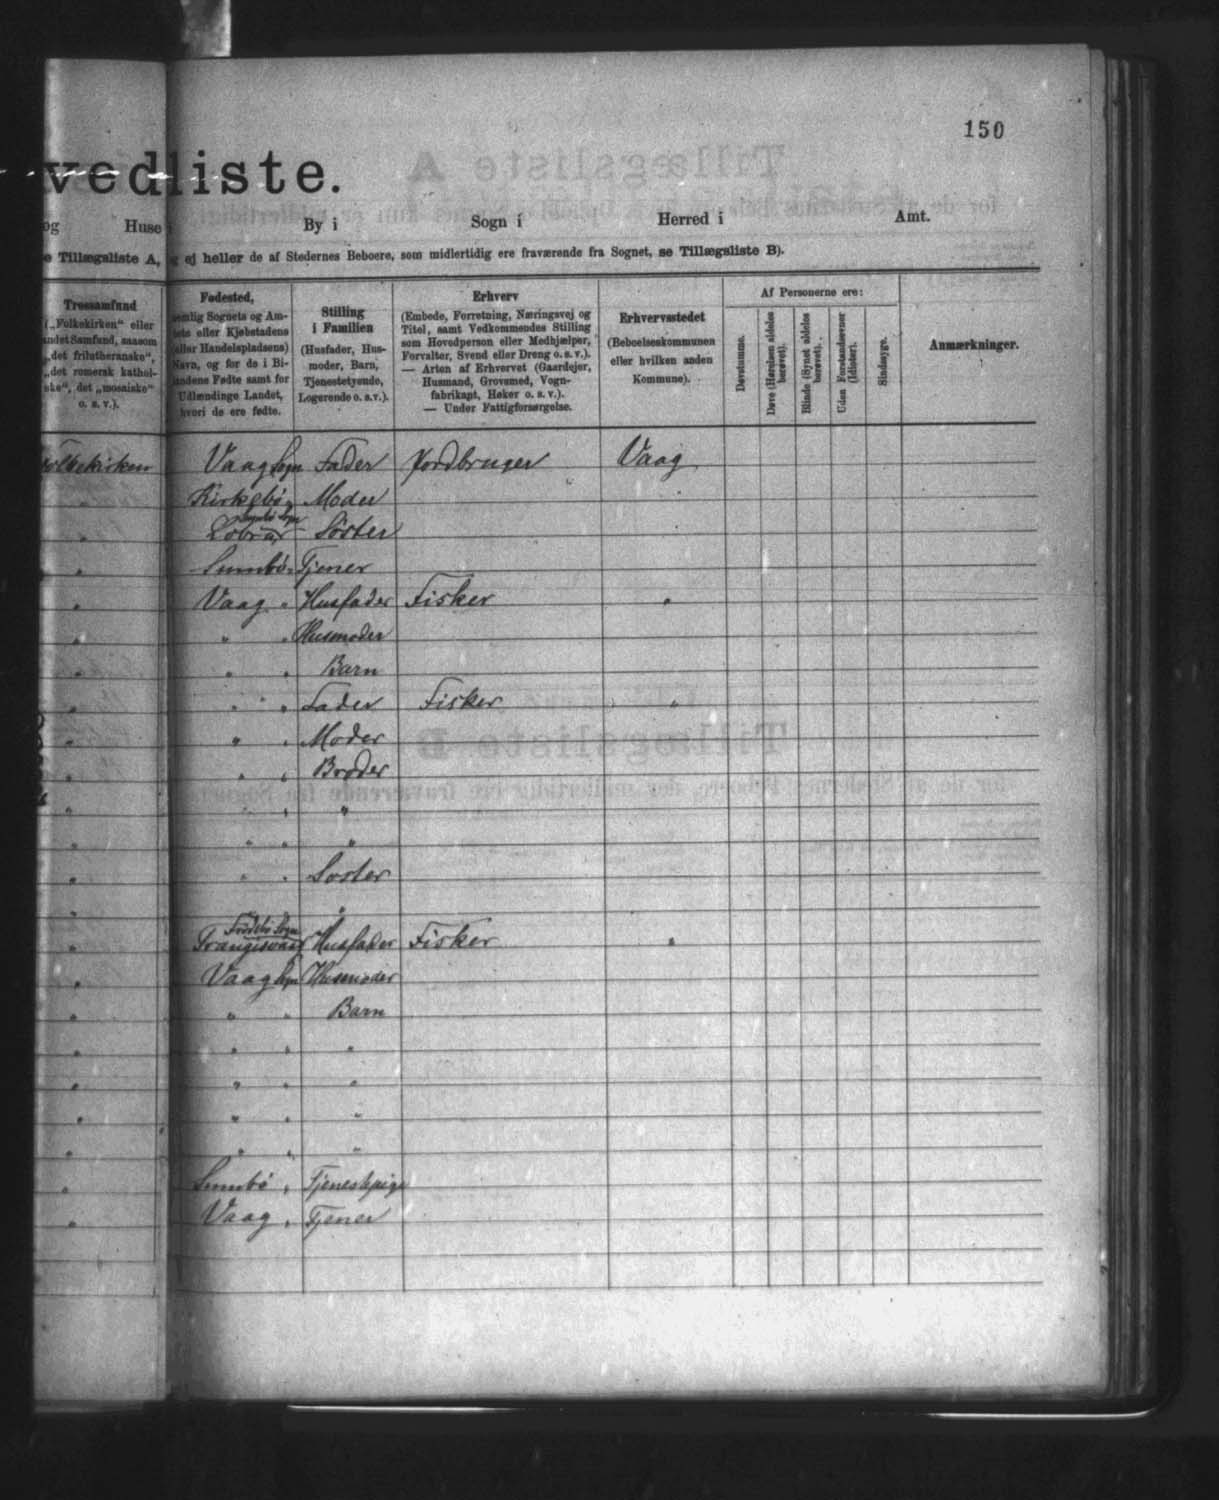 150
vedliste.
og Huse i By i Sogn i Herred i Amt.
e Tillægsliste A, g ej heller de af Stedernes Beboere, som midlertidig ere fraværende fra Sognet, se Tillægsliste B).
Troessamfund
(„Folkekirken“ eller
andet Samfund, saasom
„det frilutheranske“,
„det romersk kathol-
ske“, det „mosaiske“
o. s. v.).
Fødested,
nemlig Sognets og Am-
tets eller Kjøbstadens
(eller Handelspladsens)
Navn, og for de i Bi-
landene Fødte samt for
Udlændinge Landet,
hvori de ere fødte.
Stilling
i Familien
(Husfader, Hus-
moder, Barn,
Tjenestetyende,
Logerende o. s. v.).
Erhverv
(Embede, Forretning, Næringsvej og
Titel, samt Vedkommendes Stilling
som Hovedperson eller Medhjælper,
Forvalter, Svend eller Dreng o. s. v.).
— Arten af Erhvervet (Gaardejer,
Husmand, Grovsmed, Vogn-
fabrikant, Høker o. s. v.).
— Under Fattigforsørgelse.
Erhvervsstedet
(Beboelseskommunen
eller hvilken anden
Kommune).
Af Personerne ere:
Døvstumme.
Døve (Hørelsen aldeles
berøvet).
Blinde (Synet aldeles
berøvet).
Uden Forstandsevner
(Idioter).
Sindssyge.
Anmærkninger.
Folkekirken Vaag Sogn Fader Jordbruger Vaag
" Kirkebø " Moder
Sumbø Sogn
" Lobra Søster
" Sumbø " Tjener
" Vaag " Husfader Fisker "
" " " Husmoder
" " " Barn
" " " Fader Fisker "
" " " Moder
" " " Broder
" " " "
" " " "
" " " Søster
" "
Frodebø Sogn
" Trangisvaag Husfader Fisker "
" Vaag Sogn Husmoder
" " " Barn
" " " "
" " " "
" " " "
" " " "
" Sumbø " Tjenestepige
" Vaag " Tjener